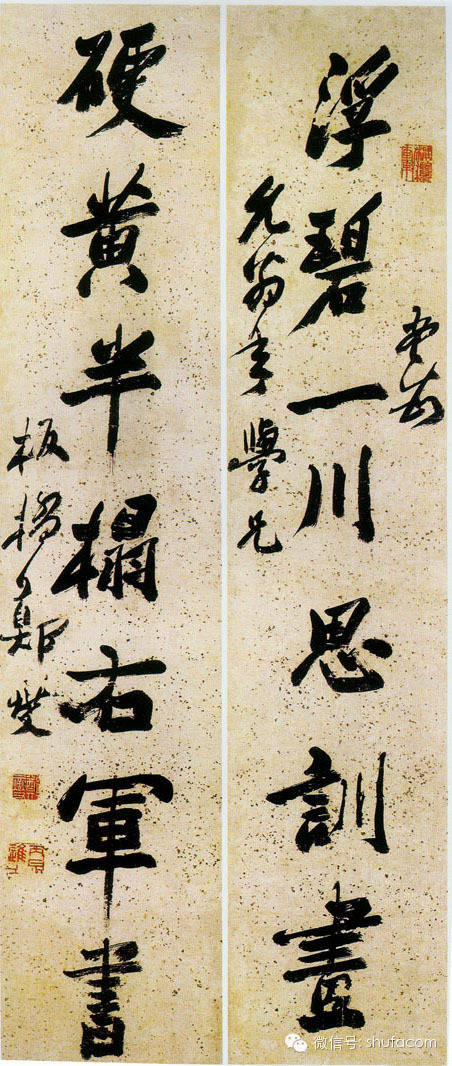 浮碧一川思訓畫
允翁年學兄
硬黃半榻右軍書
板橋鄭燮
微信号: shufacom